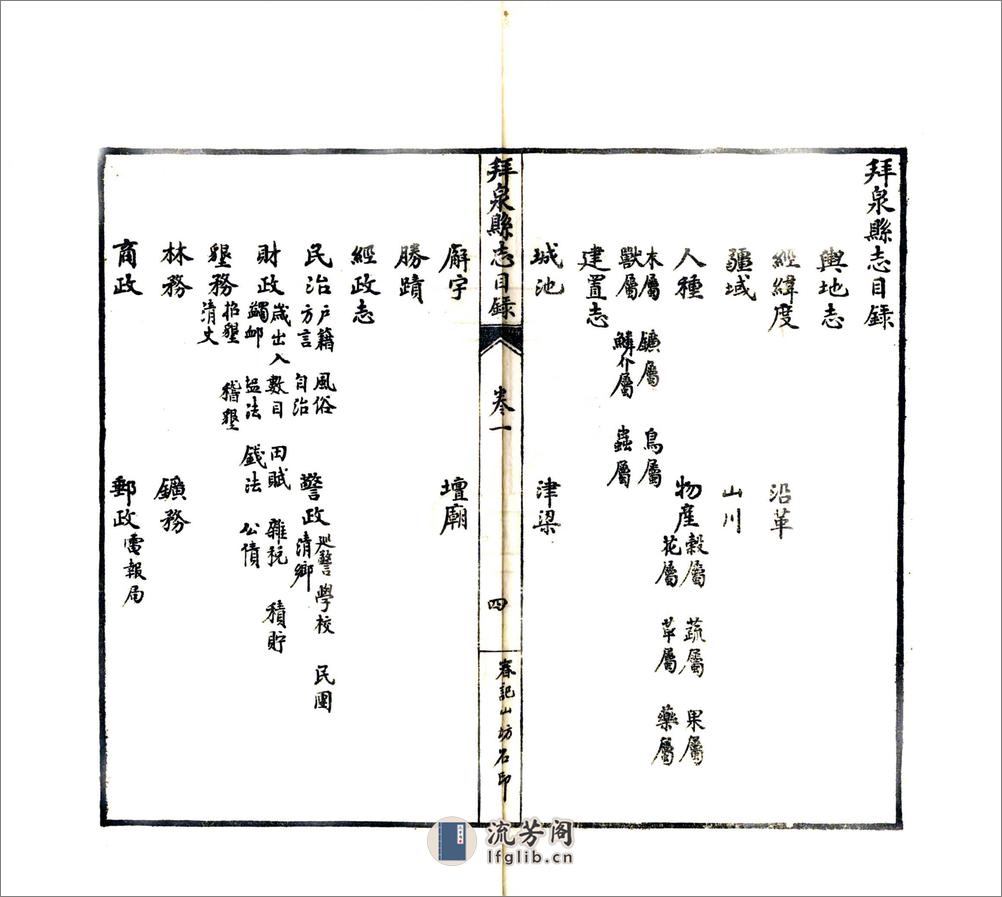 拜泉縣志目録
輿地志
經緯度 沿革
疆域 山川
人種 物產 穀屬 蔬屬 果屬
花屬 草屬 藥屬
木屬 鑛屬 鳥屬
獸屬 鱗介屬 蟲屬
建置志
城池 津梁
拜泉縣志目録 卷一 四 春記山坊石印
廨宇 壇廟
勝蹟
經政志
民治 户籍 風俗
方言 自治
警政 巡警 學校 民團
清鄉
財政 歲出入數目 田賦 雜稅 積貯
蠲卹 塩法 錢法 公債
墾務 招墾 稽墾
清丈
林務 鑛務
商政 郵政 電報局
流芳阁
lfglib.cn